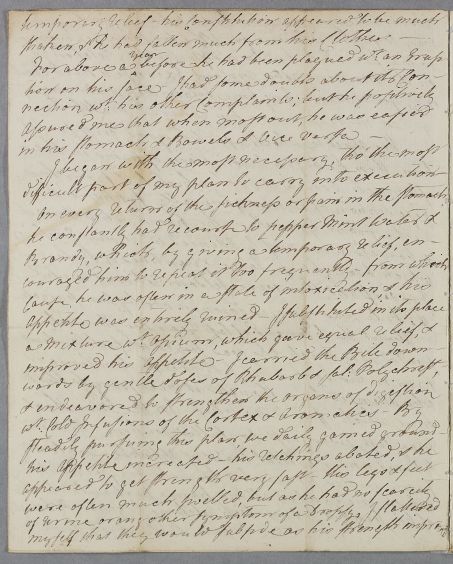 temporary relief - his Constitution appeared to be much
shaken, & he had fallen much from his Clothes -
For above a year before he had been plagued wt. an Erup
tion on his face I had some doubts about its Con-
nection wt. his other Complaints, but he positively
assured me that when most out, he was easier
in his Stomach & Bowels & vice versa -
I began with the most necessary, tho' the most
difficult part of my plan to carry into execution
on every return of the sickness or pain in the Stomach
he constantly had recourse to peppermint Water &
Brandy, which, by giving a temporary relief, en-
couraged him to repeat it too frequently, from which
cause he was often in a state of intoxication & his
Appetite was entirely ruined I substituted in its place
a Mixture wt. opium, which gave equal relief, &
improved his Appetite - I carried the Bile down
wards by gentle doses of Rhubarb & sal. Polychrest,
& endeavored to strengthen the organs of digestion
wt. Cold Infusions of the Cortex & Aromatics By
steadily pursuing this plan we daily gained ground -
his Appetite increased - his retchings abated, & he
appeared to get strength very fast - his legs & feet
were often much swelled but as he had no scarcity
of urine or any other symptom of a Dropsy I flattered
myself that they would subside as his strength improv